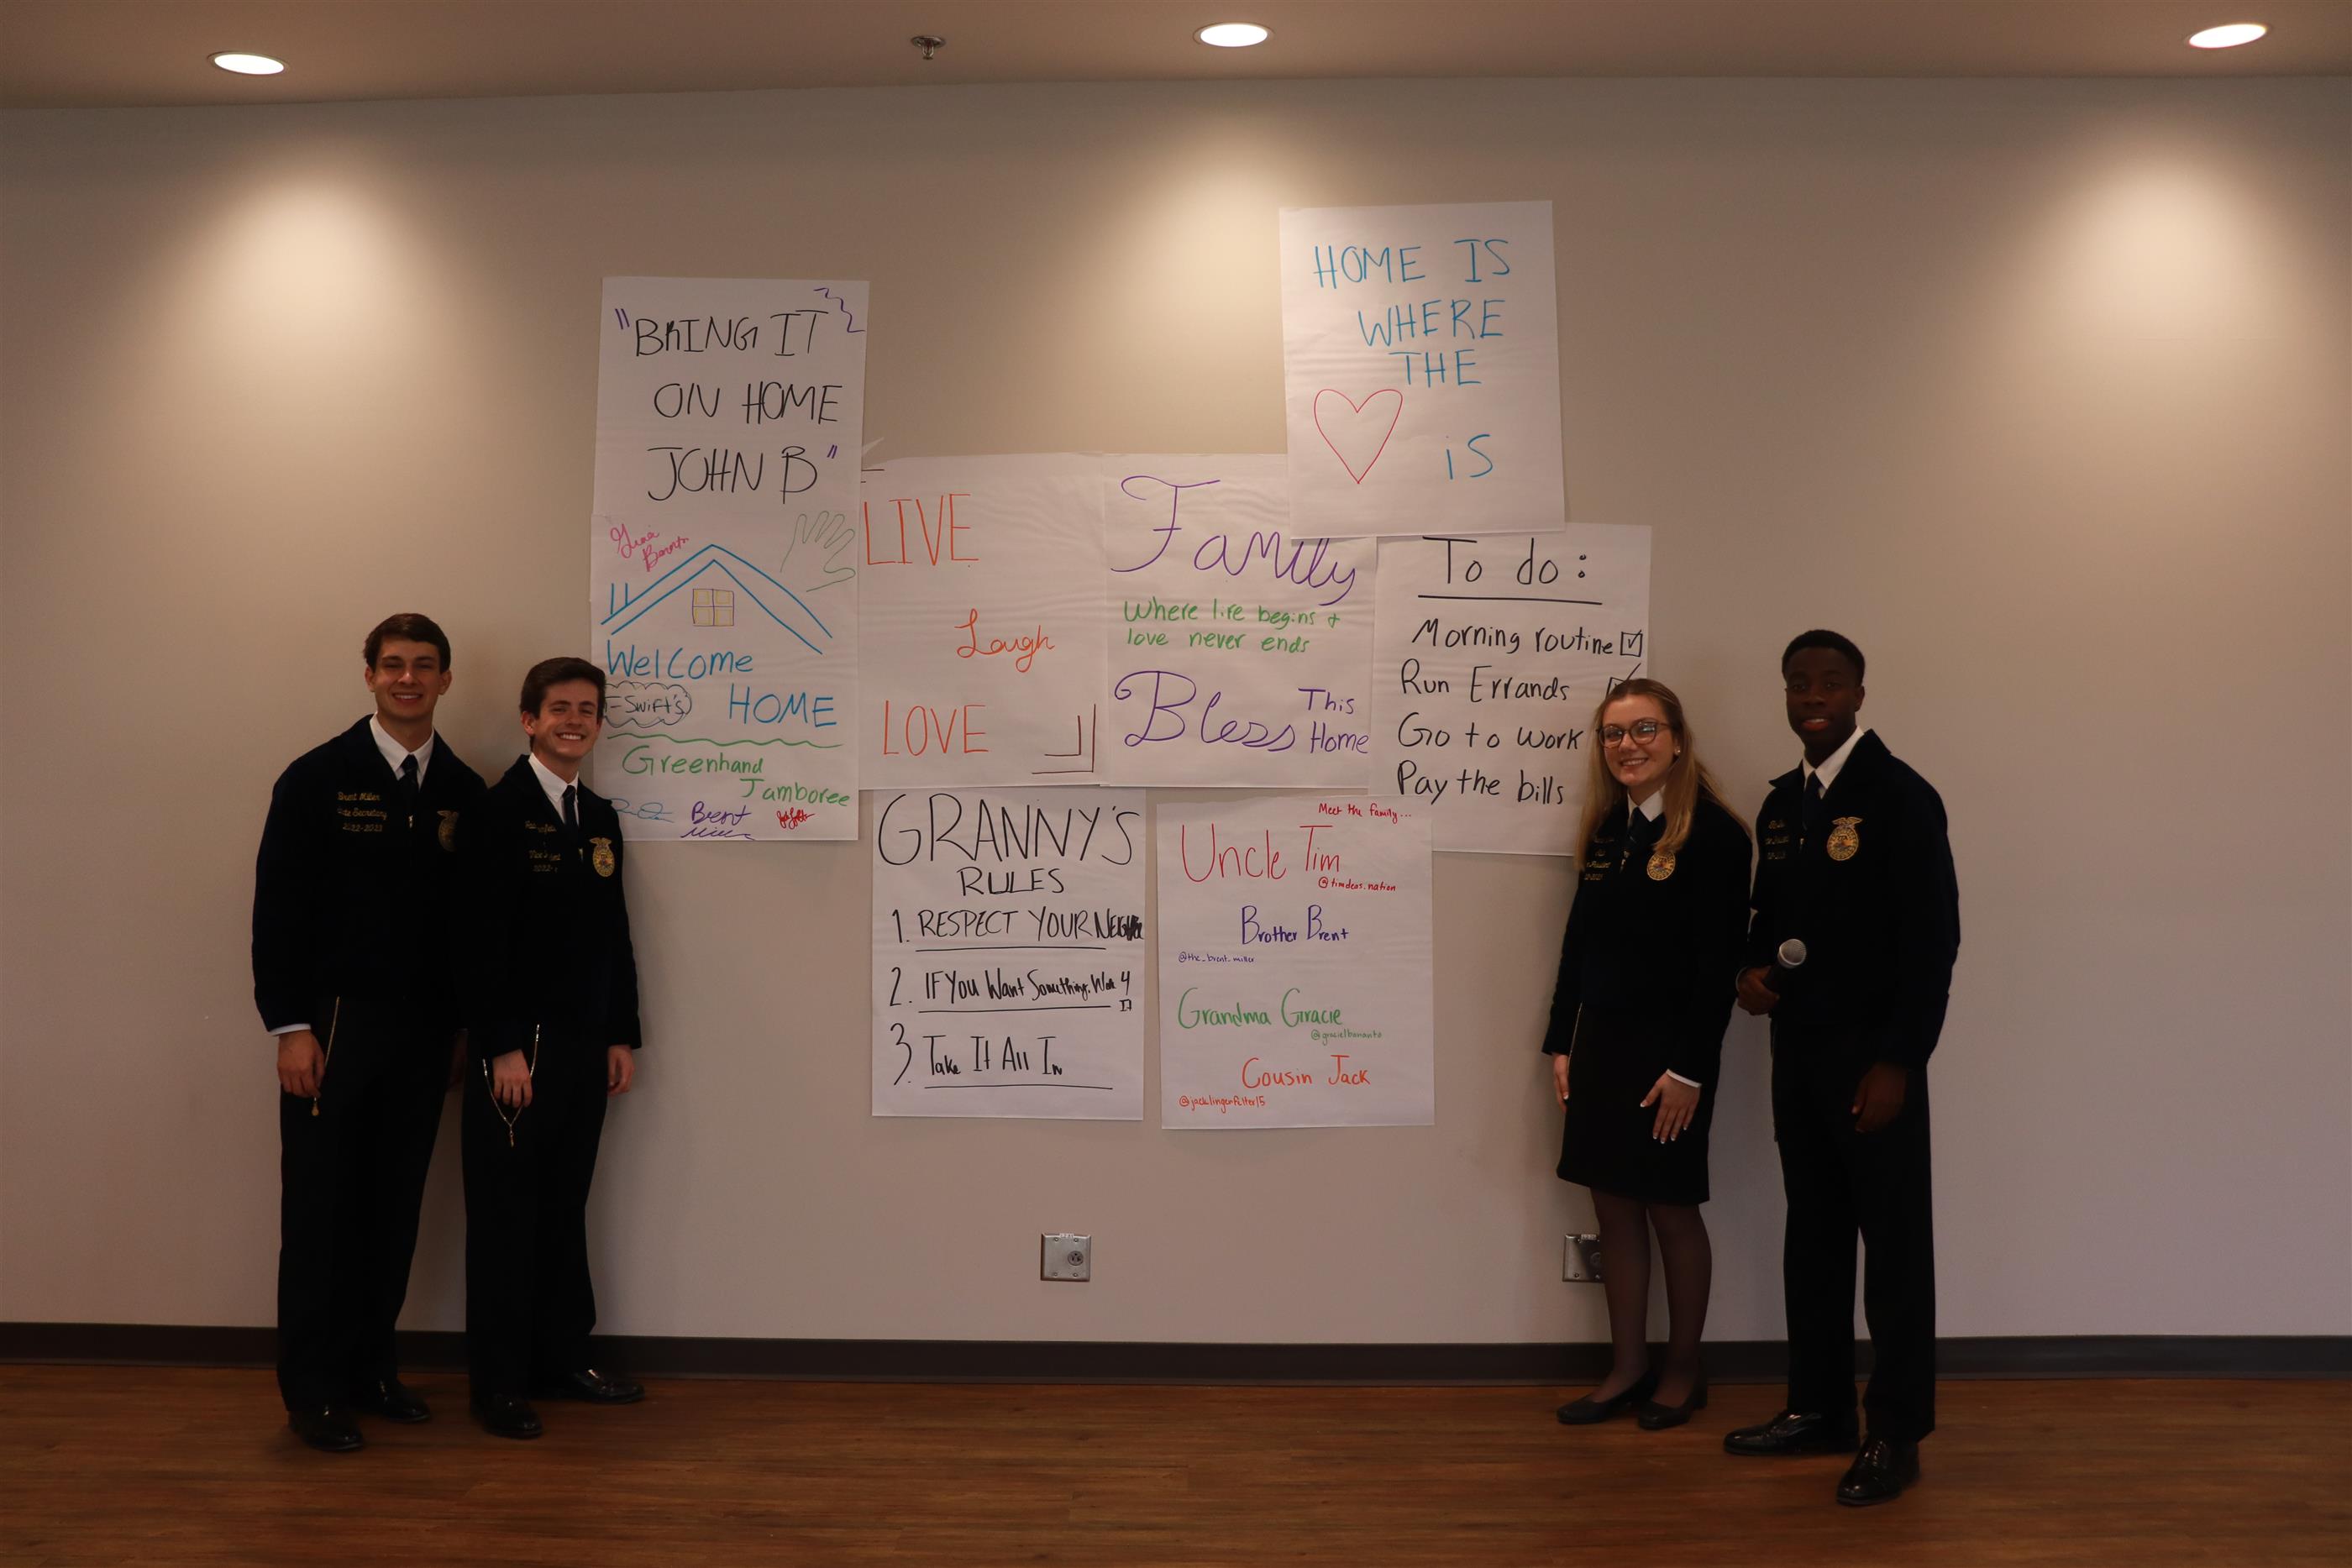 "BRING IT
ON HOME
JOHN B"
Welcome
-Swift's
HOME
Greenhand
Jamboree
Brent
LIVE
Laugh
LOVE
Family
Where life begins +
love never ends
Bless This
Home
HOME IS
WHERE
THE
iS
To do:
Morning routine
Run Errands
Go to work
Pay the bills
GRANNY'S
RULES
1. RESPECT YOUR
2. IF YOU Want Something, Work 4
It
3. Take It All In
Meet the family...
Uncle Tim
@timdeas.nation
Brother Brent
@the_brent_miller
Grandma Gracie
Cousin Jack
Brent Miller
State Secretary
2022-2023